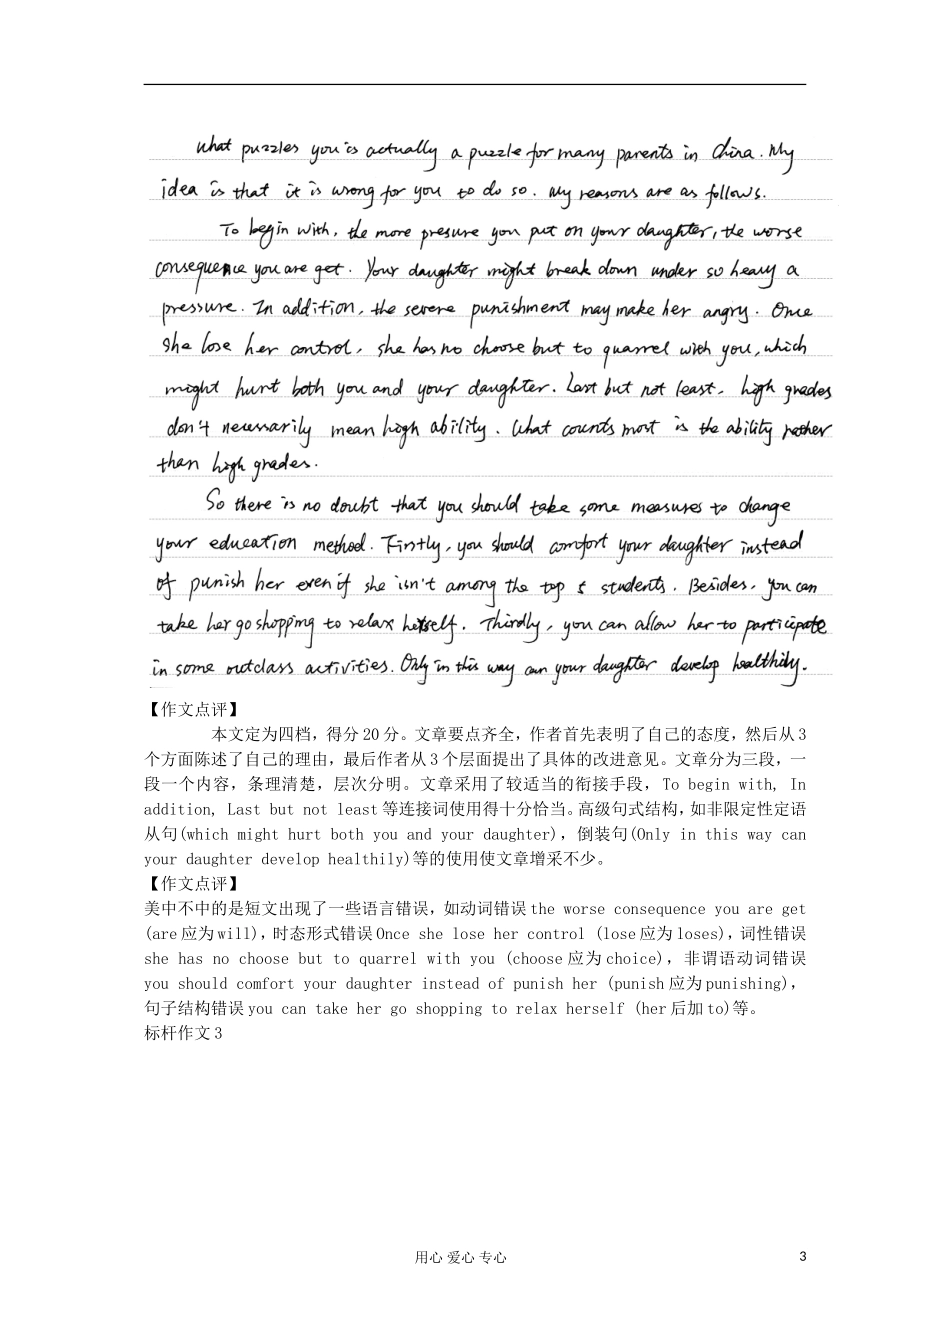 What puzzles you is actually a puzzle for many parents in China. My
idea is that it is wrong for you to do so. My reasons are as follows.
To begin with, the more presure you put on your daughter, the worse
consequence you are get. Your daughter might break down under so heavy a
pressure. In addition, the severe punishment may make her angry. Once
she lose her control, she has no choose but to quarrel with you, which
might hurt both you and your daughter. Last but not least, high grades
don't necessarily mean high ability. What counts most is the ability rather
than high grades.
So there is no doubt that you should take some measures to change
your education method. Firstly, you should comfort your daughter instead
of punish her even if she isn't among the top 5 students. Besides, you can
take her go shopping to relax herself. Thirdly, you can allow her to participate
in some outclass activities. Only in this way can your daughter develop healthily.
【作文点评】
本文定为四档，得分 20 分。文章要点齐全，作者首先表明了自己的态度，然后从 3
个方面陈述了自己的理由，最后作者从 3 个层面提出了具体的改进意见。文章分为三段，一
段一个内容，条理清楚，层次分明。文章采用了较适当的衔接手段，To begin with, In
addition, Last but not least 等连接词使用得十分恰当。高级句式结构，如非限定性定语
从句(which might hurt both you and your daughter)，倒装句(Only in this way can
your daughter develop healthily)等的使用使文章增采不少。
【作文点评】
美中不中的是短文出现了一些语言错误，如动词错误 the worse consequence you are get
(are 应为 will)，时态形式错误 Once she lose her control (lose 应为 loses)，词性错误
she has no choose but to quarrel with you (choose 应为 choice)，非谓语动词错误
you should comfort your daughter instead of punish her (punish 应为 punishing)，
句子结构错误 you can take her go shopping to relax herself (her 后加 to)等。
标杆作文 3
用心 爱心 专心
3